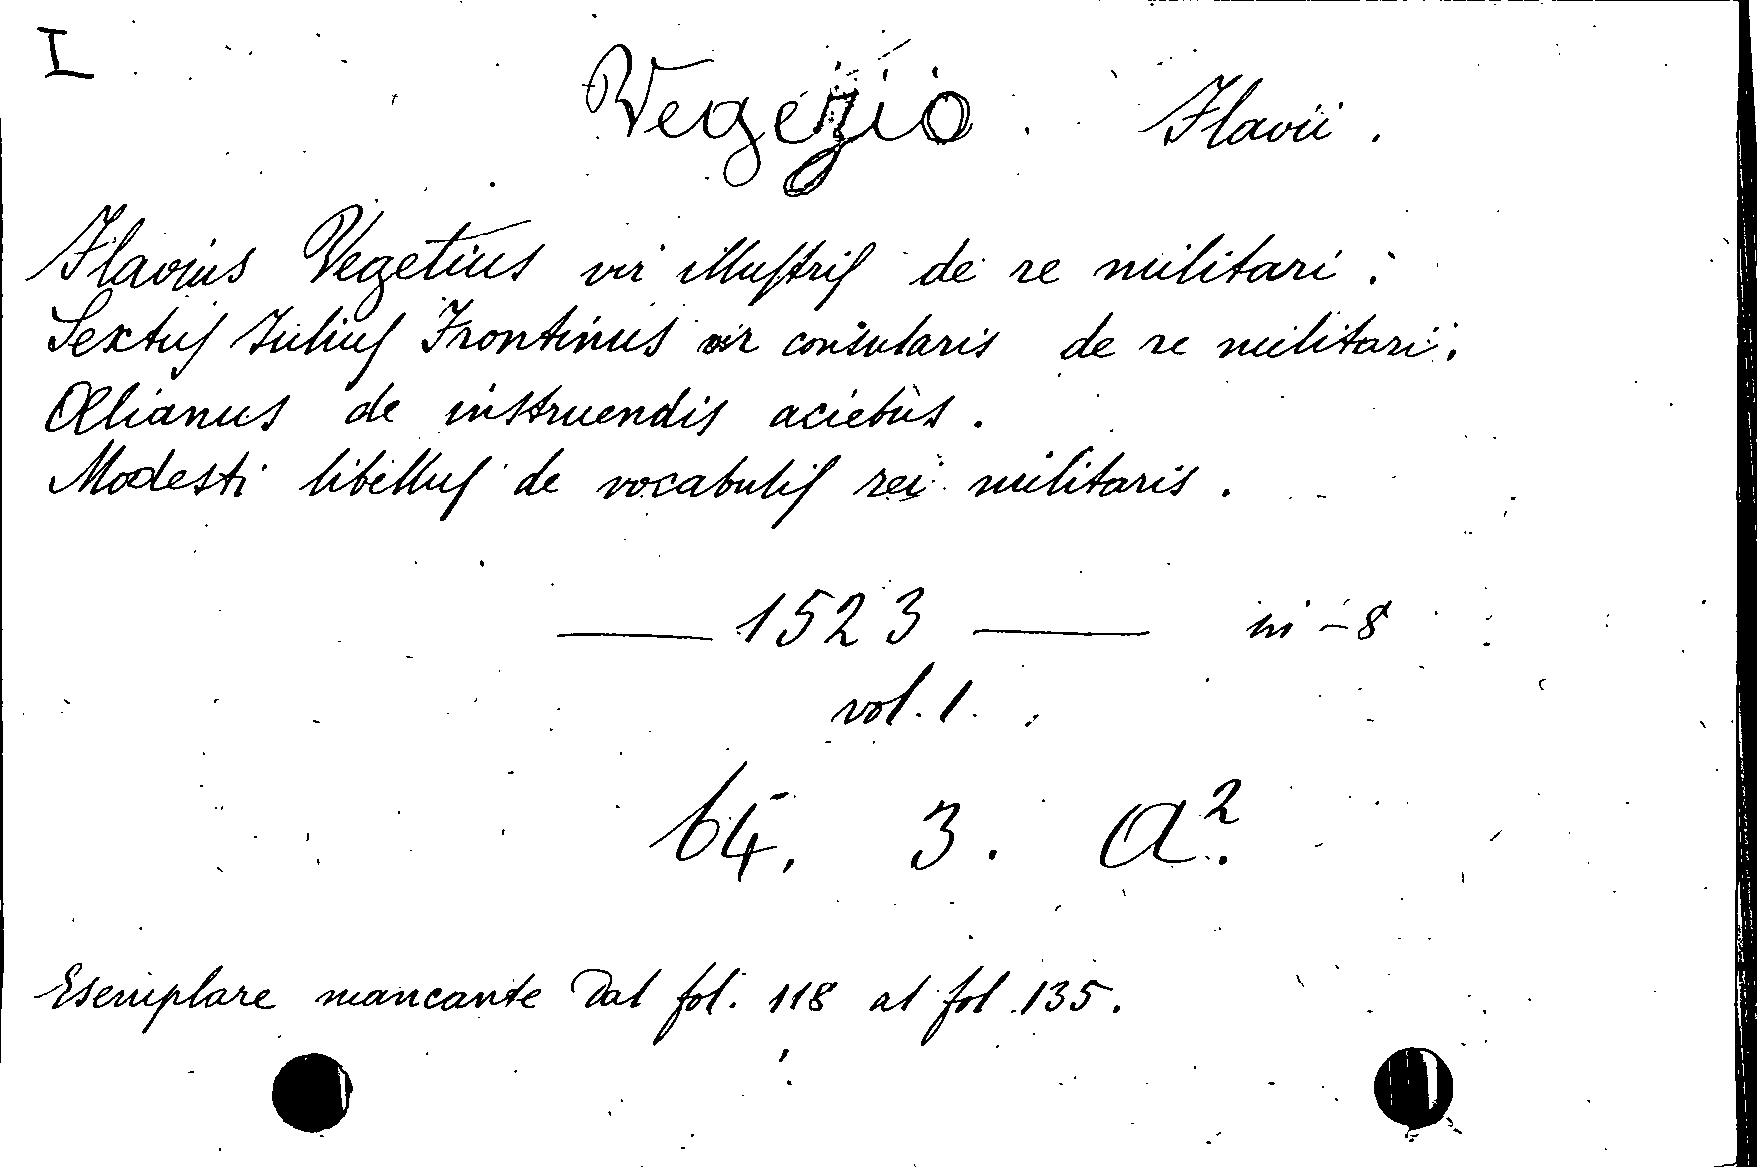 I
Vegezio. Flavii.
Flavius Vegetius vir illustris de re militari.
Sextus Iulius Frontinus vir consularis de re militari.
Ælianus de instruendis aciebus.
Modesti libellus de vocabulis rei militaris.
— 1523 — in-8
vol. 1.
64. 3. A².
Esemplare mancante dal fol. 118 al fol. 135.